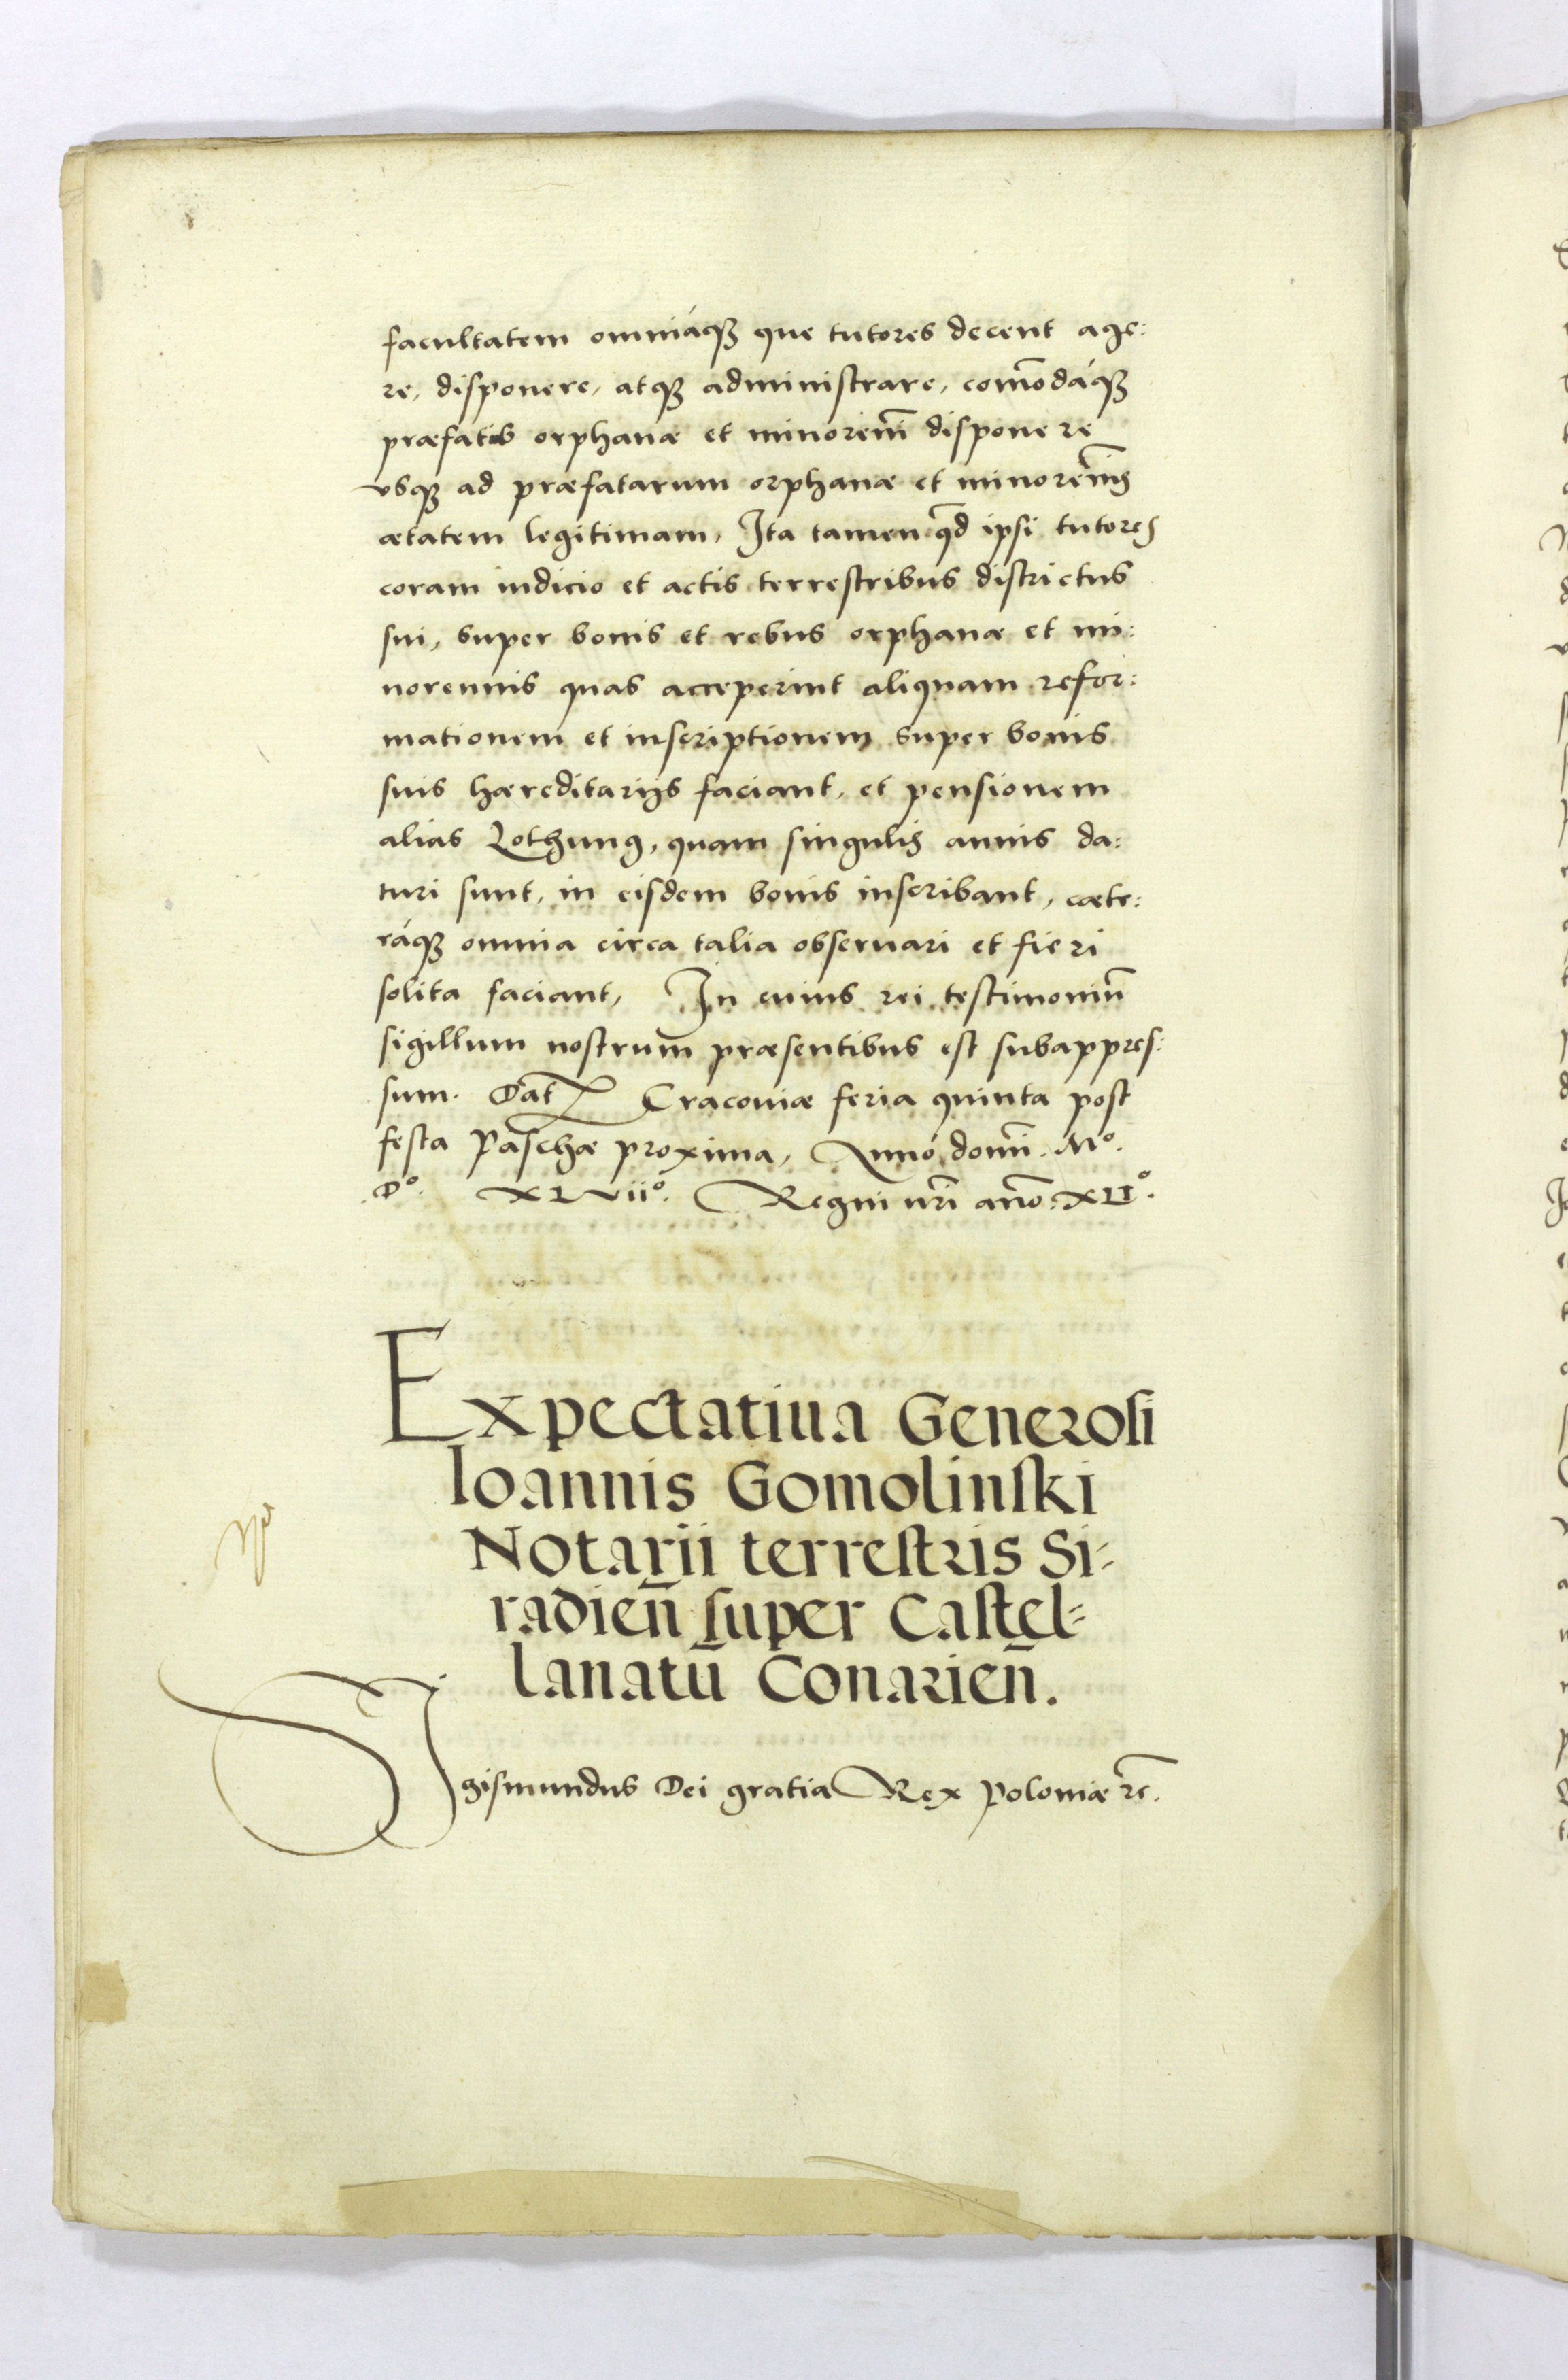 facultatem omniáqꝫ que tutores decent age:
re, disponere, atqꝫ administrare, com̄odáqꝫ
præfatis orphanæ et minoren̄i disponere
vsqꝫ ad præfatarum orphanæ et minoren̄is
ætatem legitimam, Ita tamen qd̄ ipsi tutores
coram iudicio et actis terrestribus districtus
sui, super bonis et rebus orphanæ et mi:
norennis quas acceperint aliquam refor:
mationem et inscriptionem super bonis
suis hæreditarijs faciant, et pensionem
alias Lothung, quam singulis annis da:
turi sunt, in eisdem bonis inscribant, cæte:
ráqꝫ omnia circa talia obseruari et fieri
solita faciant, In cuius rei testimoniū
sigillum nostrum præsentibus est subappres:
sum. Dat̄ Cracouiæ feria quinta post
festa Paschæ proxima, Anno domī. Mº.
Dº. XLviiº. Regni nr̄i an̄o: XLIº.
Expectatiua Generosi
Ioannis Gomolinski
Notarii terrestris Si-
radien̄ super Castel-
lanatū Conarien̄.
Sigismundus Dei gratia Rex Poloniæ ꝛc̄.